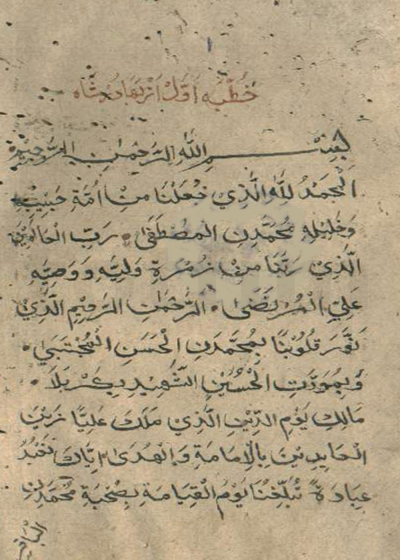 خُطْبه اَوّل اَز بهادر شاه
بِسْمِ اللهِ الرَّحْمٰنِ الرَّحِيْمِ
الْحَمْدُ لِلّٰهِ الَّذِي جَعَلَنَا مِنْ اُمَّةِ حَبِيْبِهِ
وَخَلِيْلِهِ مُحَمَّدِنِ الْمُصْطَفَى ۰ رَبِّ الْعَالَمِيْنَ
الَّذِي رَبَّنَا مِنْ زُمْرَةِ وَلِيِّهِ وَوَصِيِّهِ
عَلِيِّ الْمُرْتَضَى ۰ الرَّحْمٰنِ الرَّحِيْمِ الَّذِيْ
نَوَّرَ قُلُوْبَنَا بِمُحَمَّدَنِ الْحَسَنِ الْمُجْتَبَى ۰
وَبِمَوَدَّتِ الْحُسَيْنِ الشَّهِيْدِ بِكَرْبَلَا ۰
مَالِكِ يَوْمِ الدِّيْنِ الَّذِيْ مَلَكَ عَلَيْنَا زَيْنَ
الْعَابِدِيْنَ بِالْاِمَامَةِ وَالْهُدَى اِيَّاكَ نَعْبُدُ
عِبَادَةً تُبَلِّغُنَا يَوْمَ الْقِيَامَةِ بِصُحْبَةِ مُحَمَّدِنِ
الباقر